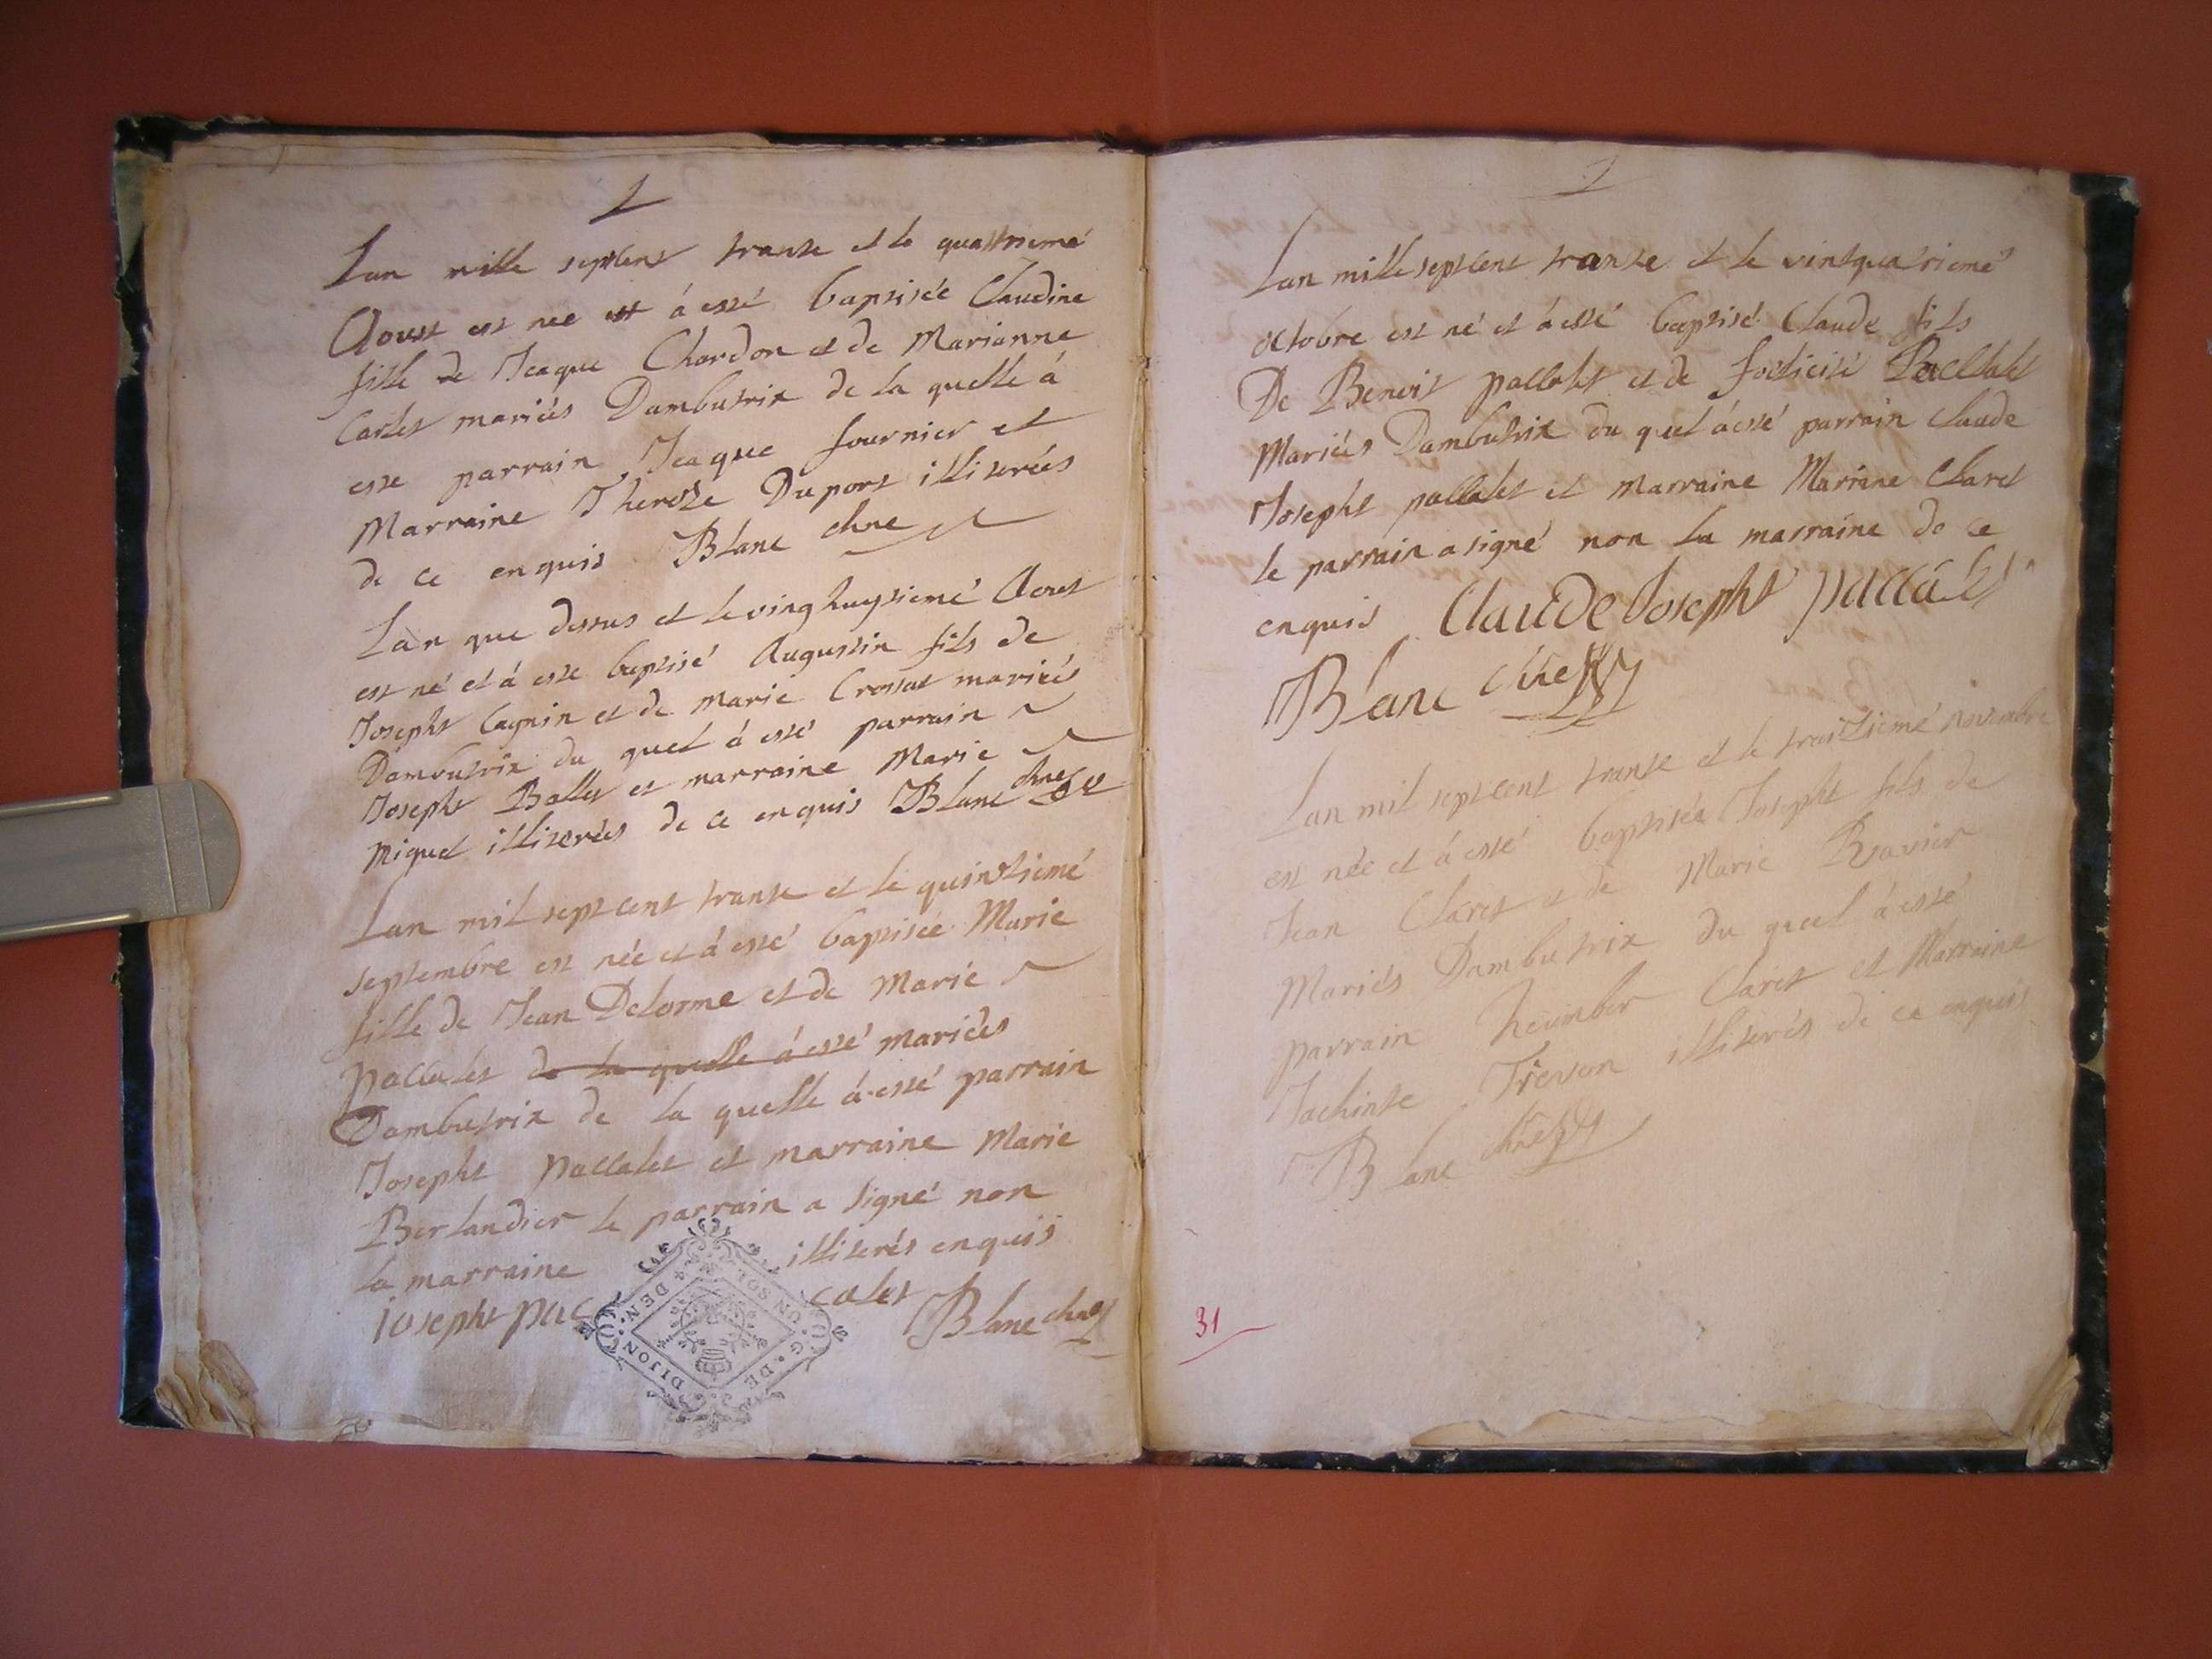 1
Lan mille septcent trante et le quattriemé
Aoust est nee et á esté baptisée Claudine
fille de Jcaque Chardon et de Marianne
Cartet mariés Dambutrix de la quelle á
este parrain Jcaque fournier et
Marraine Therese Duport illiterées
de ce enquis Blanc chne
Lan que dessus et le ving huytiemé Aout
est né et á este baptisé Augustin fils de
Josepht Cagnin et de Marie Crossat mariés
Dambutrix du quel á esté parrain
Josepht Ballet et marraine Marie
Miguet illiterées de ce enquis Blanc chne
Lan mil septcent trante et le quinziemé
septembre est née et á esté baptisée Marie
fille de Jean Delorme et de Marie
Paccalet de la quelle á esté mariées
Dambutrix de la quelle á esté parrain
Josepht Paccalet et marraine Marie
Berlandier le parrain a signé non
la marraine illiterés enquis
iosepht paccalet Blanc chne
UN SOL. G. DE DIJON DEN.
Lan mille septcent trante et le vintquatriemé
octobre est né et á esté baptisé Claude fils
De Benoit paccalet et de foelicité Paccalet
Mariés Dambutrix du quel á esté parrain Claude
Josepht paccalet et marraine Mariane Claret
le parrain a signé non la marraine de ce
enquis Claude Josepht paccalet
Blanc chne
Lan mil septcent trante et le traiziemé novembre
est née et á esté baptisée Josepht fils de
Jean Claret et de Marie Ravier
Mariés Dambutrix du quel á esté
parrain heumber Claret et Marraine
Jachinte Trevon illiterés de ce enquis
Blanc chne
31